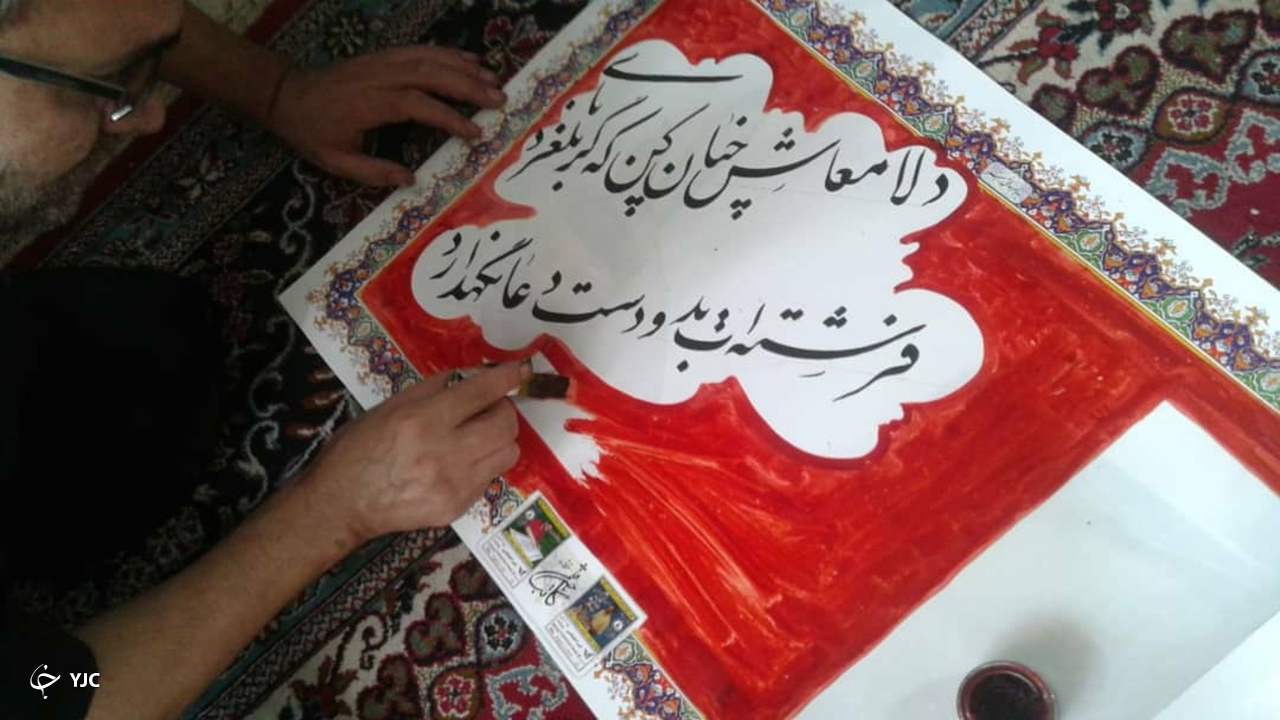 دلا معاش چنان کن که گر بلغزد پای
فرشته‌ات بدو دست دعا نگهدارد
YJC